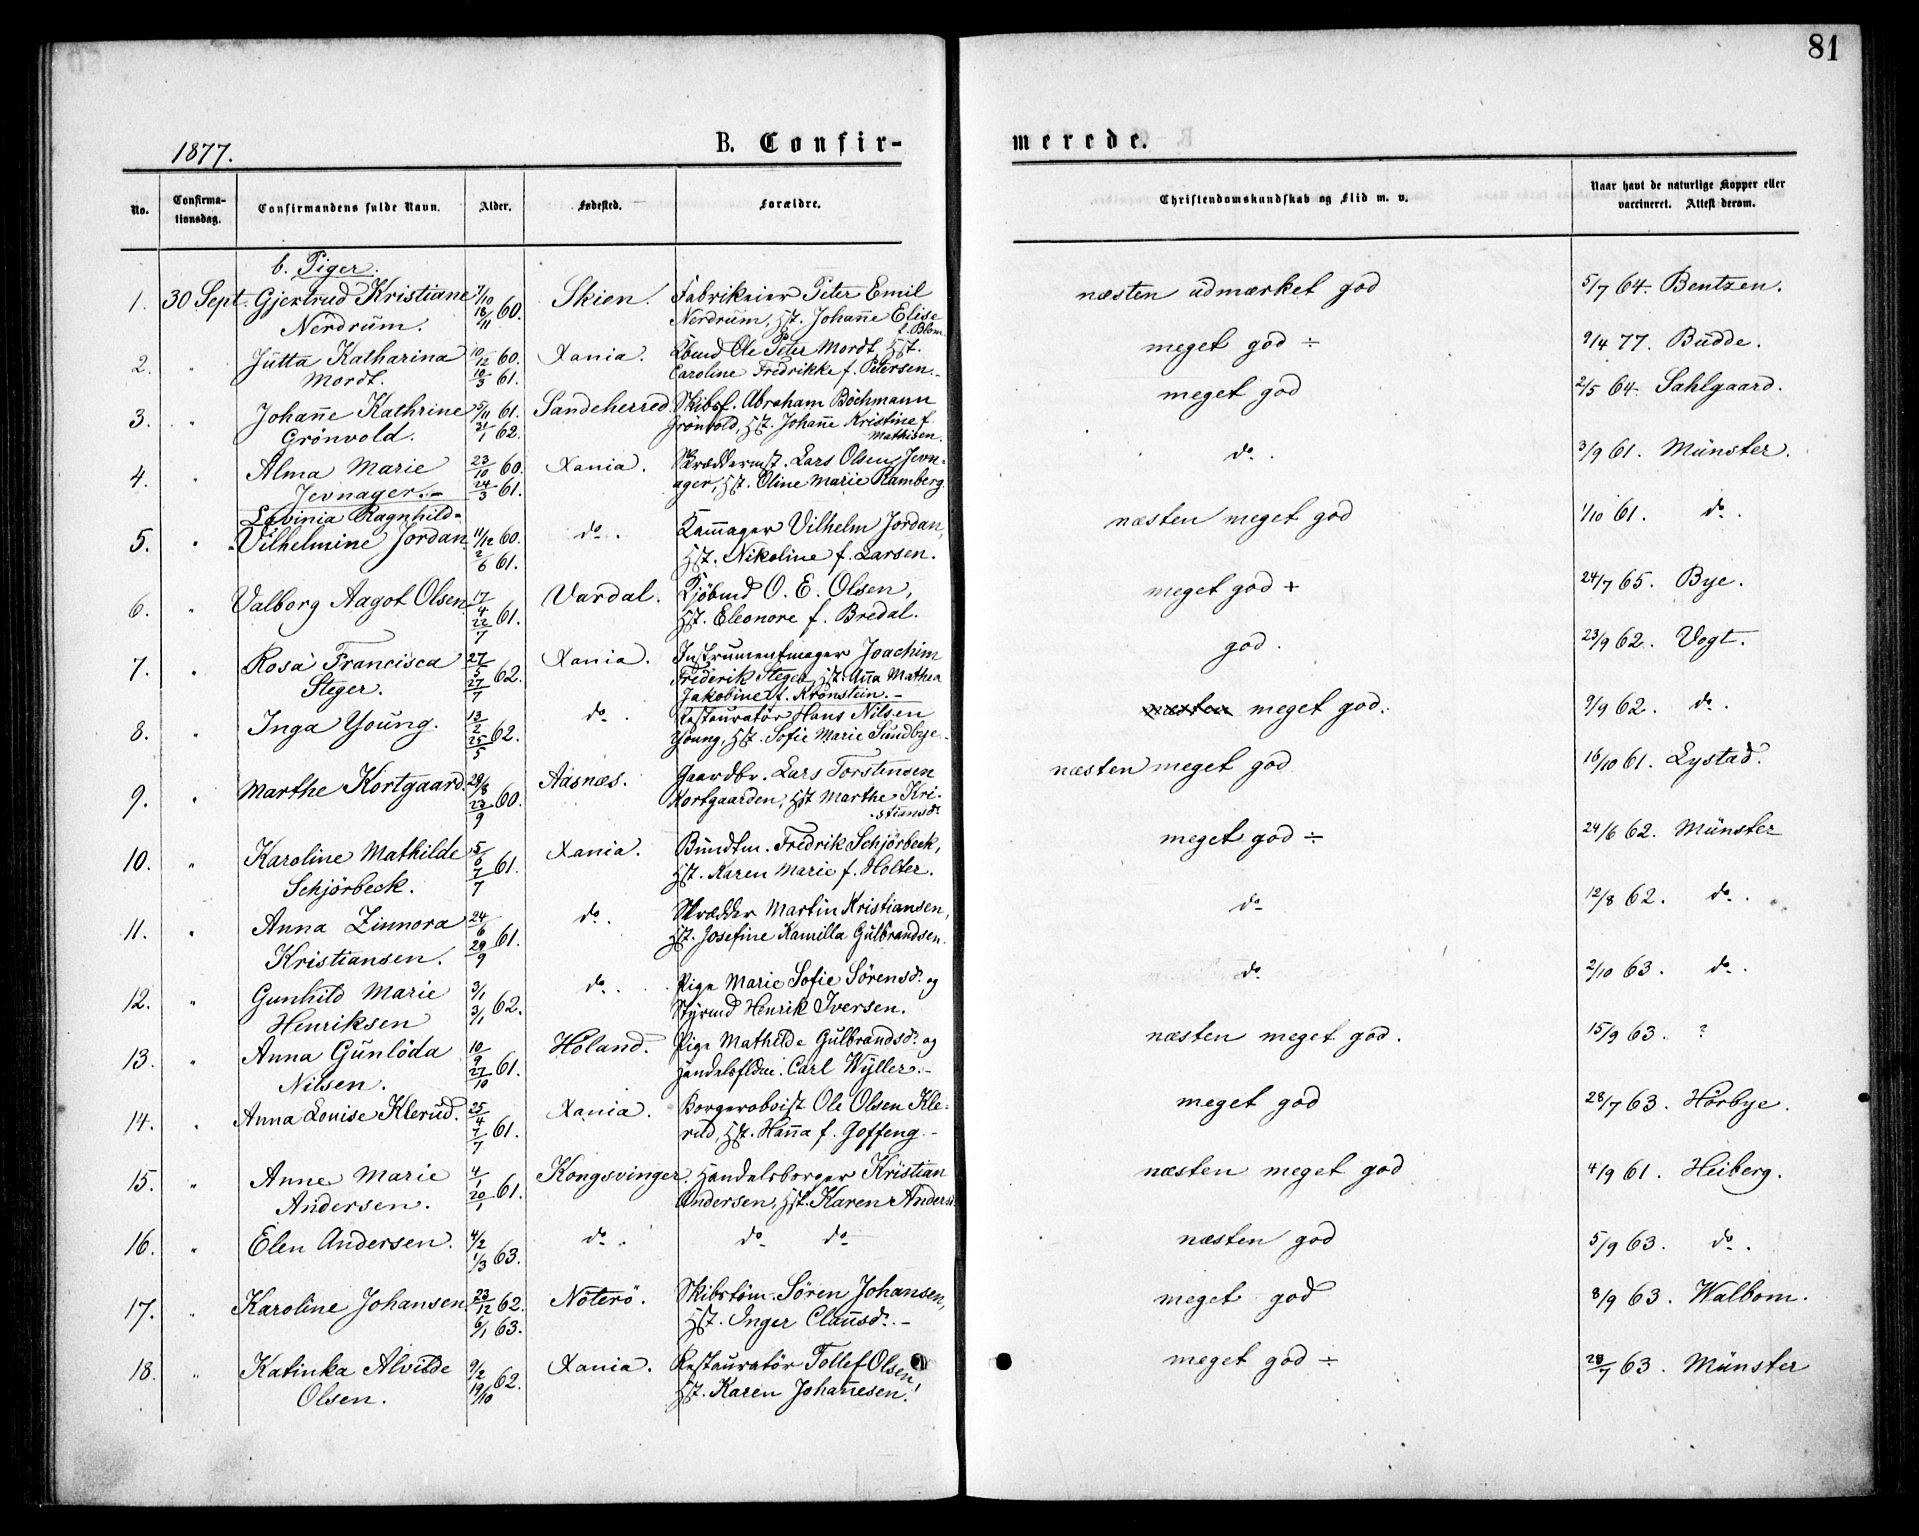 81
1877.
B. Confir-
merede.
No.
Confirma-
tionsdag.
Confirmandens fulde Navn.
Alder.
Fødested.
Forældre.
Christendomskundskab og Flid m. v.
Naar havt de naturlige Kopper eller
vaccineret. Attest derom.
b. Piger.
1. 30 Sept. Gjertrud Kristiane 7/10 Skien. Fabrikeier Peter Emil næsten udmærket god 5/7 64. Bentzen.
Nerdrum. 18/11 60. Nerdrum, Hst. Johan̄e Elise
f. Blom.
2. " Jutta Katharina 10/12 60. Xania. Ole Peter Mordt, Hst. meget god ÷ 9/4 77. Budde.
Mordt. 10/3 61. Caroline Fredrikke f. Petersen.
3. " Johan̄e Kathrine 5/11 61. Sandeherred. Skibsf. Abraham Böchmann meget god 2/5 64. Sahlgaard.
Grönvold. 21/1 62. Grönvold, Hst. Johan̄e Kristine f.
Mathisen.
4. " Alma Marie 23/10 60. Xania. Skræddermst. Lars Olsen Jevn- do. 3/9 61. Münster.
Jevnager. 24/3 61. ager, Hst. Oline Marie Ramberg.
Lavinia Ragnhild-
5. " Vilhelmine Jordan. 11/12 60. do. Kam̄ager Vilhelm Jordan, næsten meget god 1/10 61. do.
2/6 61. Hst. Nikoline f. Larsen.
6. " Valborg Aagot Olsen 17/4 Vardal. Kjöbmd O. E. Olsen, meget god + 24/7 65. Bye.
22/7 61. Hst. Eleonore f. Bredal.
7. " Rosa Francisca 27/5 Xania. Instrumentmager Joachim god. 23/9 62. Vogt.
Steger. 27/7 62. Frederik Steger, Hst. An̄a Mathea
Jakobine f. Kronstein.
8. " Inga Young. 13/2 do. Restauratör Hans Nilsen næsten meget god. 9/9 62. do.
25/5 62. Young, Hst. Sofie Marie Sundbye.
9. " Marthe Kortgaard. 29/8 Aasnæs. Gaardbr. Lars Torstensen næsten meget god 16/10 61. Lystad.
23/9 60. Kortgaarden, Hst Marthe Kri-
stiansdr.
10. " Karoline Mathilde 5/6 Xania. Bundtm. Fredrik Schjörbeck, meget god ÷ 24/6 62. Münster
Schjörbeck. 7/7 61. Hst. Karen Marie f. Holter.
11. " Anna Zinnora 24/6 do. Skrædder Martin Kristiansen, do 12/8 62. do.
Kristiansen. 29/9 61. Hst. Josefine Kamilla Gulbrandsen.
12. " Gunhild Marie 3/1 do. Pige Marie Sofie Sörensdr. og do 2/10 63. do.
Henriksen 3/1 62. Styrmd Henrik Iversen.
13. " Anna Gunlöda 10/9 Höland. Pige Mathilde Gulbrandsdr. og næsten meget god. 15/9 63. ?
Nilsen. 27/10 61. Carl Wyller.
14. " Anna Louise Klerud. 25/4 Xania. Borgerobvist Ole Olsen Kle- meget god 28/7 63. Hörbye.
7/7 61. rud, Hst. Han̄a f. Goffeng.
15. " Anne Marie 4/1 Kongsvinger. Handelsborger Kristian næsten meget god 4/9 61. Heiberg.
Andersen. 20/1 61. Andersen, Hst. Karen Anders
16. " Elen Andersen. 4/2 do. do do næsten god 5/9 63. do.
1/3 63.
17. " Karoline Johansen 23/12 62. Nöterö. Skibstöm. Sören Johansen, meget god 8/9 63. Walbom.
6/1 63. Hst. Inger Clausdr.
18. " Katinka Alvilde 9/2 Xania. Restauratör Tollef Olsen, meget god ÷ 28/7 63. Münster
Olsen. 19/10 62. Hst. Karen Johan̄esen!